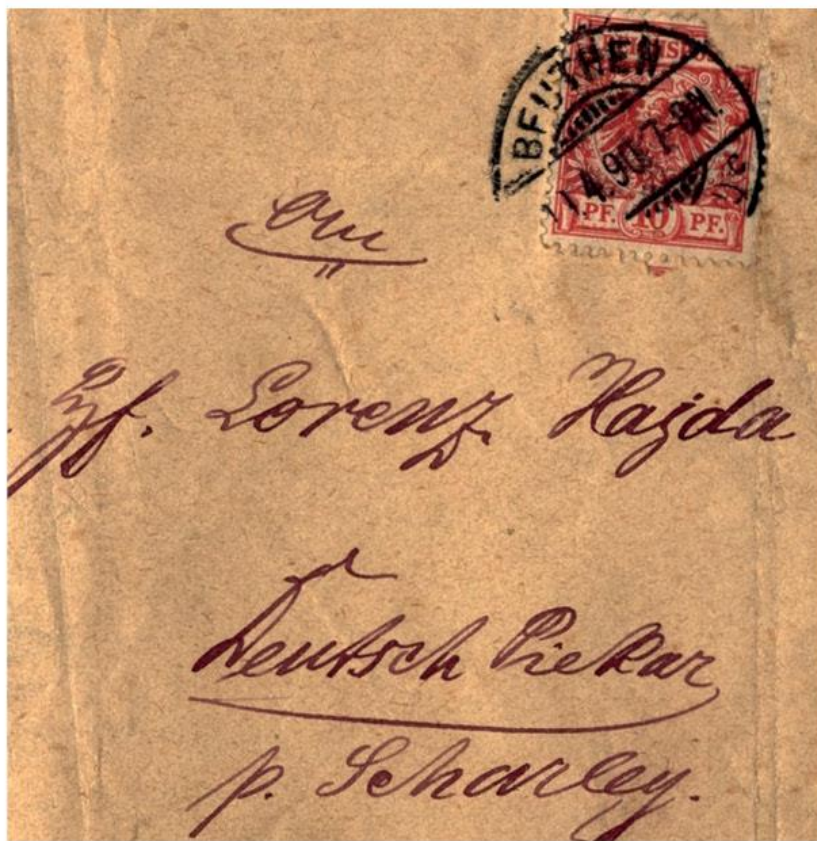 BEUTHEN
11 4.90. 7-8N.
PF. 10 PF.
An
Lorenz Hajda
Deutsch Piekar
p. Scharley.